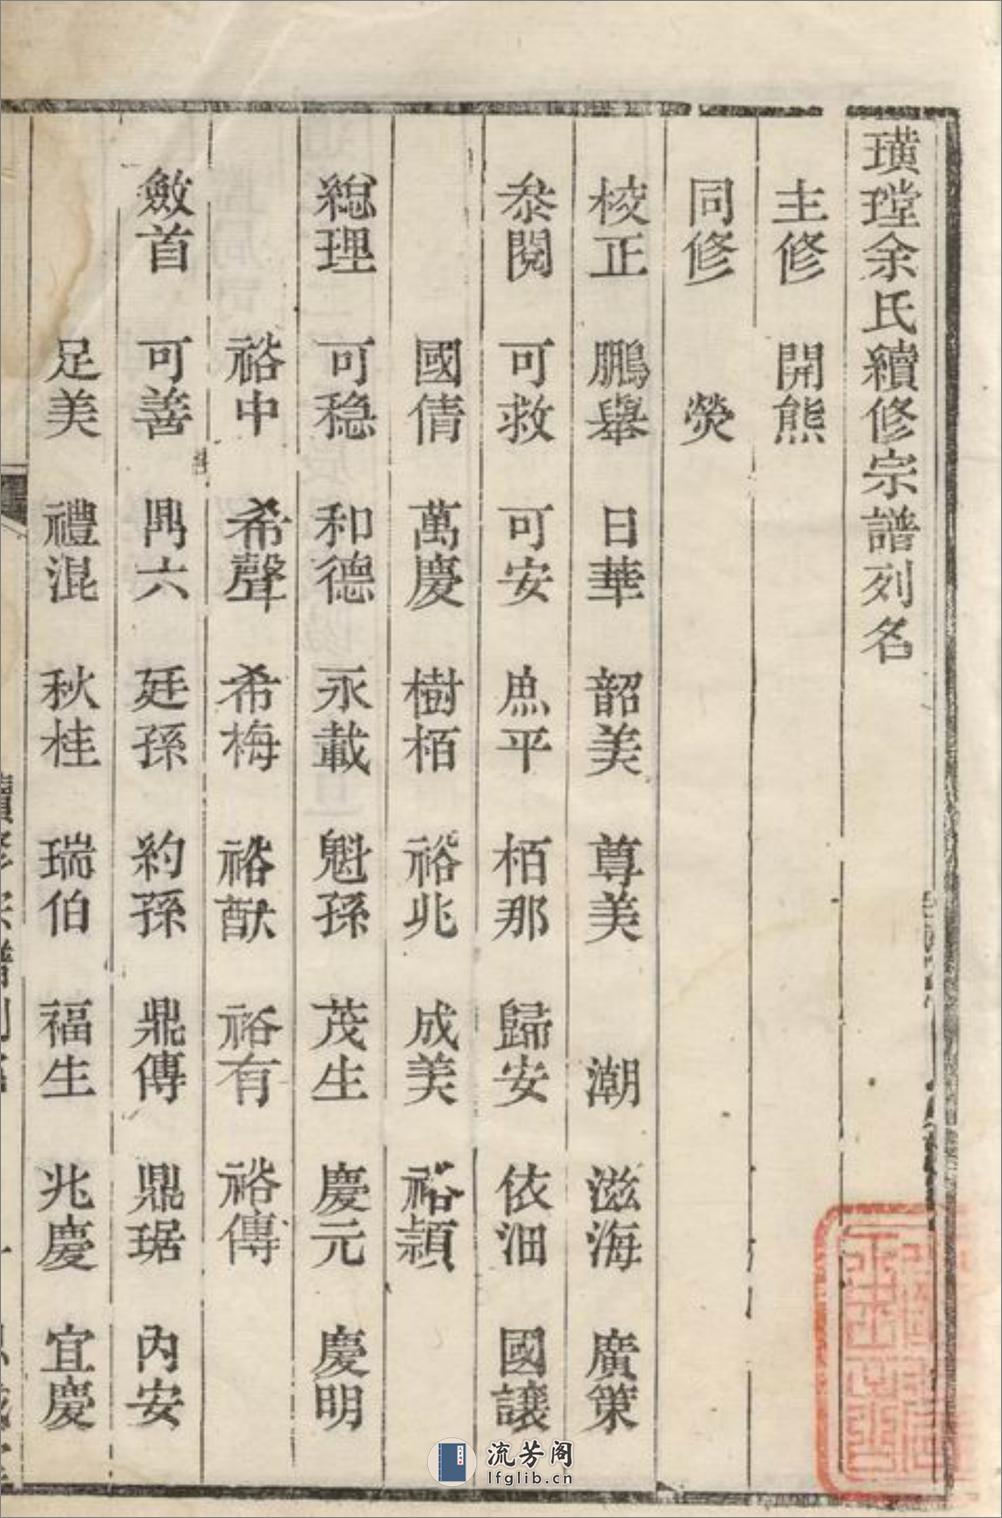 璜瑆余氏續修宗譜列名
主修 開熊
同修 熒
校正 鵬舉 日華 韶美 尊美 潮 滋海 廣策
叅閱 可救 可安 烋平 栢那 歸安 依沺 國讓
國倩 萬慶 樹栢 裕兆 成美 裕穎
總理 可穩 和德 永載 魁孫 茂生 慶元 慶明
裕中 希聲 希梅 裕猷 裕有 裕傳
斂首 可善 鼎六 廷孫 約孫 鼎傳 鼎琚 內安
足美 禮混 秋桂 瑞伯 福生 兆慶 宜慶
續修宗譜列名
流芳阁
lfglib.cn